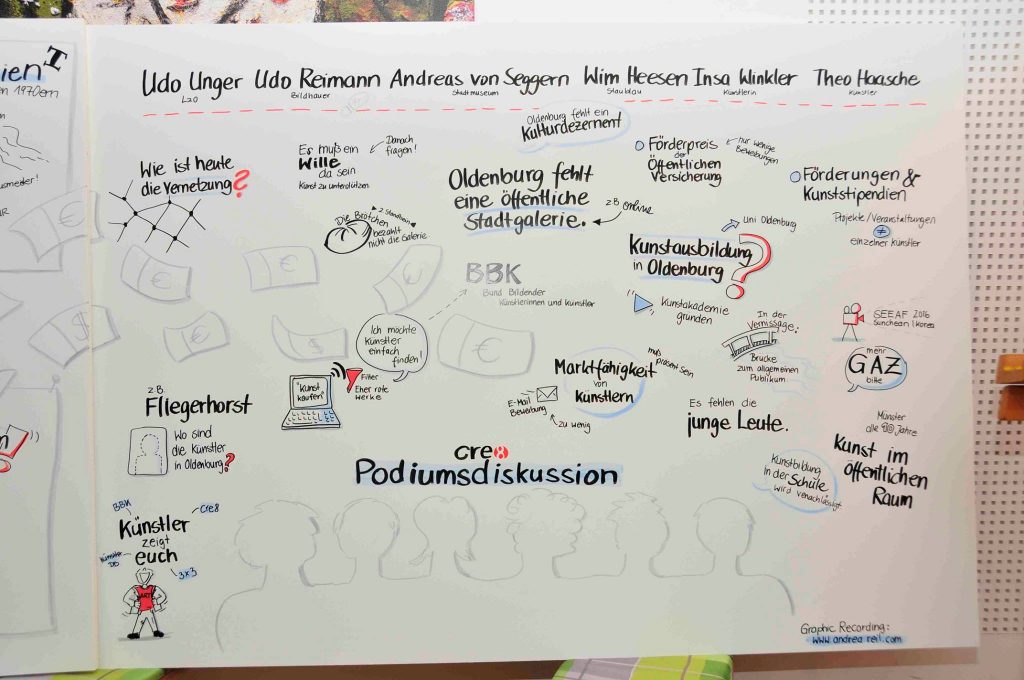 T
ien
en 1970ern
Udo Unger Udo Reimann Andreas von Seggern Wim Heesen Insa Winkler Theo Haasche
LzO Bildhauer Stadtmuseum Staublau Künstlerin Künstler
Wie ist heute
die Vernetzung?
Es muß ein
Wille
da sein
Kunst zu unterstützen
Danach
fragen!
Die Brötchen
bezahlt
nicht die Galerie
2. Standbein
Oldenburg fehlt ein
Kulturdezernent
Oldenburg fehlt
eine öffentliche
Stadtgalerie.
z.B. online
Förderpreis
der
Öffentlichen
Versicherung
nur wenige
Bewerbungen
Förderungen &
Kunststipendien
Projekte/Veranstaltungen
≠
einzelner Künstler
Kunstausbildung
in Oldenburg ?
uni Oldenburg
Kunstakademie
gründen
BBK
Bund Bildender
Künstlerinnen und Künstler
Ich möchte
Künstler
einfach
finden!
"Kunst
kaufen"
Filter
Eher rote
Werke
Marktfähigkeit
von
Künstlern
muß präsent sein
E-Mail
Bewerbung
zu wenig
In der
Vernissage:
Brücke
zum allgemeinen
Publikum
SEEAF 2016
Suncheon | Korea
mehr
GAZ
bitte
Es fehlen die
junge Leute.
Münster
alle 10 Jahre
Kunst im
öffentlichen
Raum
Kunstbildung
in der Schule
wird vernachlässigt
z.B.
Fliegerhorst
Wo sind
die Künstler
in Oldenburg?
cre8
Podiumsdiskussion
BBK
Cre8
Künstler
zeigt
euch
Künstler
DB
3x3
ART
Graphic Recording:
www.andrea reil.com